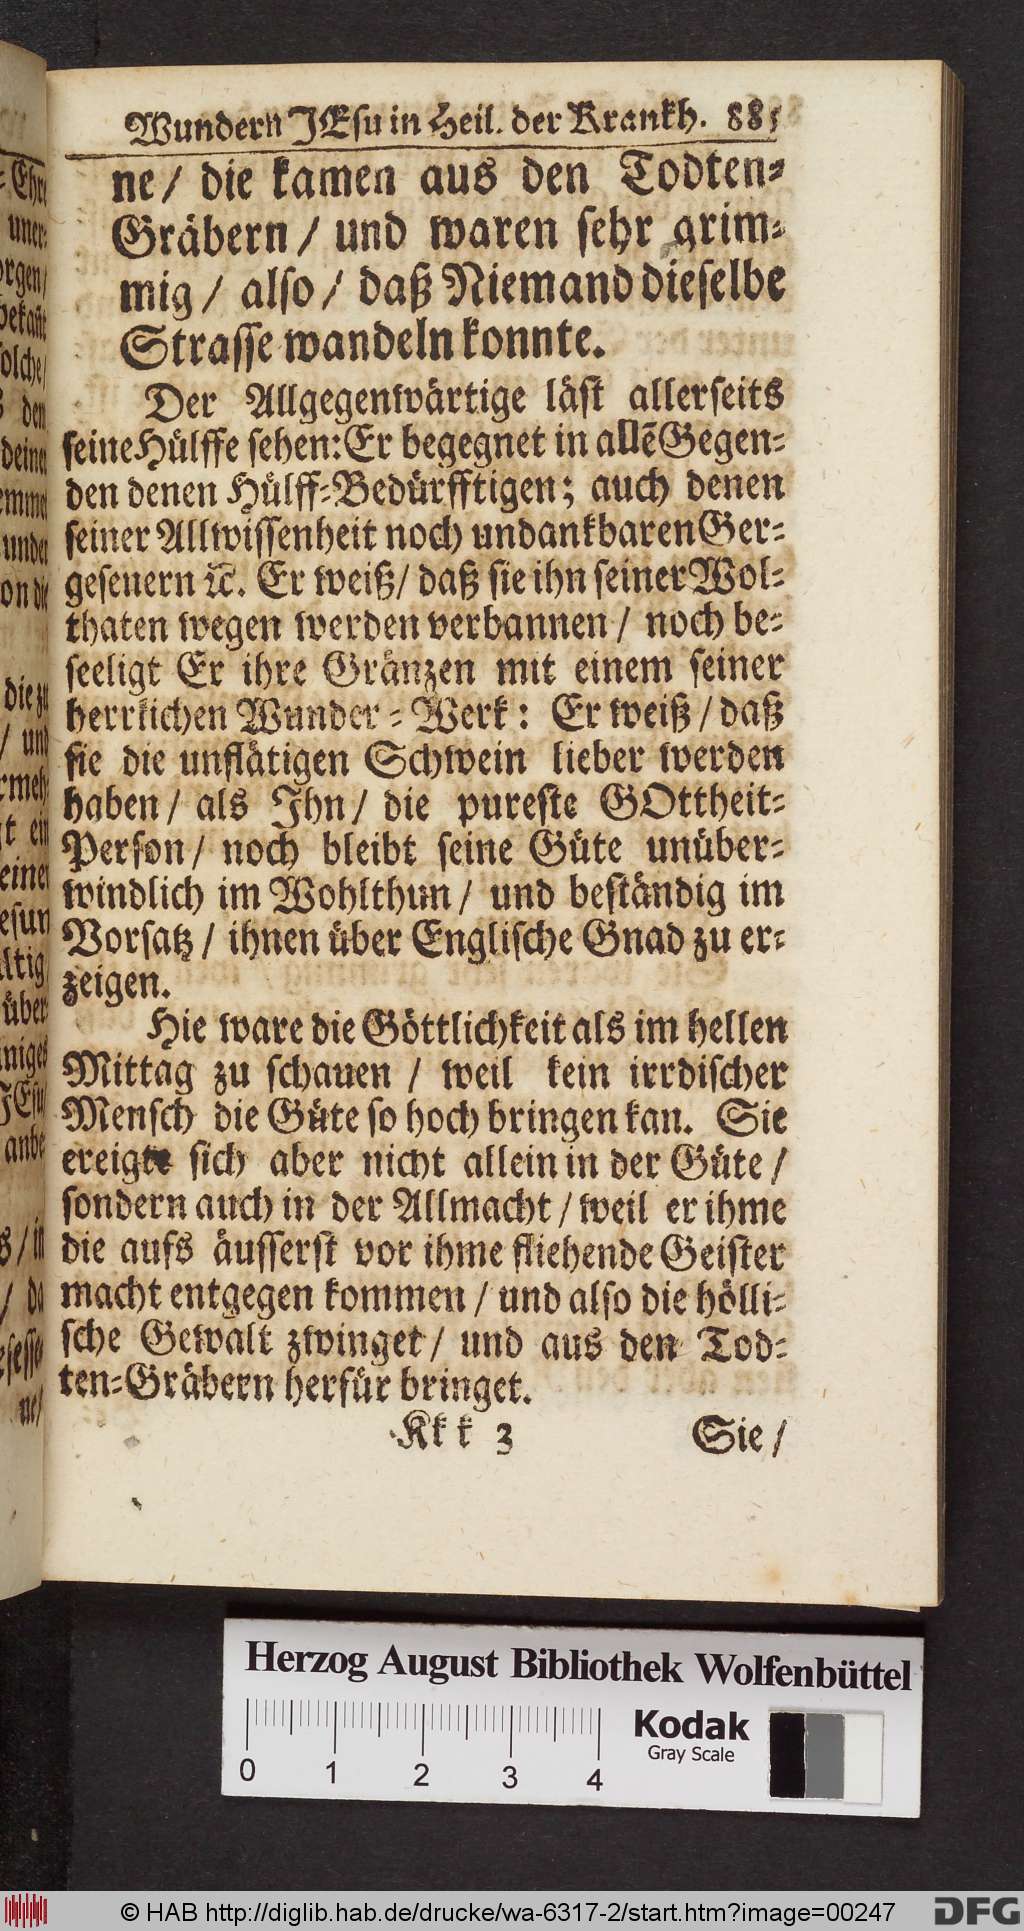 Wundern JEsu in Heil. der Krankh. 885
ne / die kamen aus den Todten-
Gräbern / und waren sehr grim-
mig / also / daß Niemand dieselbe
Strasse wandeln konnte.
Der Allgegenwärtige läst allerseits
seine Hülffe sehen: Er begegnet in allẽ Gegen-
den denen Hülff-Bedürfftigen; auch denen
seiner Allwissenheit noch undankbaren Ger-
gesenern ꝛc. Er weiß / daß sie ihn seiner Wol-
thaten wegen werden verbannen / noch be-
seeligt Er ihre Gränzen mit einem seiner
herrlichen Wunder-Werk: Er weiß / daß
sie die unflätigen Schwein lieber werden
haben / als Ihn / die pureste GOttheit-
Person / noch bleibt seine Güte unüber-
windlich im Wohlthun / und beständig im
Vorsatz / ihnen über Englische Gnad zu er-
zeigen.
Hie ware die Göttlichkeit als im hellen
Mittag zu schauen / weil kein irrdischer
Mensch die Güte so hoch bringen kan. Sie
ereigte sich aber nicht allein in der Güte /
sondern auch in der Allmacht / weil er ihme
die aufs äusserst vor ihme fliehende Geister
macht entgegen kommen / und also die hölli-
sche Gewalt zwinget / und aus den Tod-
ten-Gräbern herfür bringet.
Kkk 3 Sie /
Herzog August Bibliothek Wolfenbüttel
0 1 2 3 4
Kodak
Gray Scale
© HAB http://diglib.hab.de/drucke/wa-6317-2/start.htm?image=00247
DFG